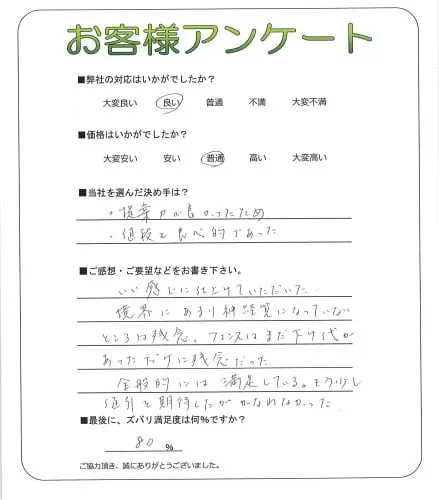 お客様アンケート
■弊社の対応はいかがでしたか?
大変良い 良い 普通 不満 大変不満
■価格はいかがでしたか?
大変安い 安い 普通 高い 大変高い
■当社を選んだ決め手は?
・提案力が良かったため
・値段も良心的であった
■ご感想・ご要望などをお書き下さい。
いい感じに仕上げていただいた。
境界にあまり神経質になっていない
ところは残念。フェンスはまだ下げ代が
あっただけに残念だった。
全般的には満足している。もう少し
値引を期待したがかなわなかった。
■最後に、ズバリ満足度は何%ですか?
80 %
ご協力頂き、誠にありがとうございました。